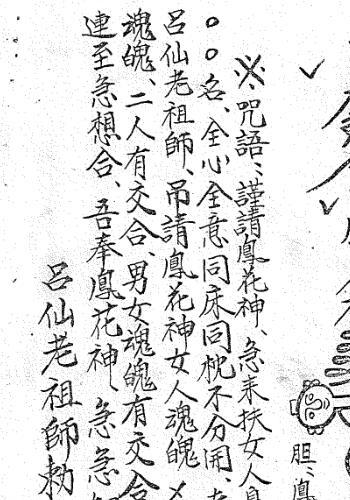 胆：鳳
※、咒語：謹請鳳花神、急来扶女人身
○○名、全心全意同床同枕不分開、
呂仙老祖師、吊請鳳花神女人魂魄
魂魄、二人有交合、男女魂魄有交合
連至急想合、吾奉鳳花神、急急
呂仙老祖師勅